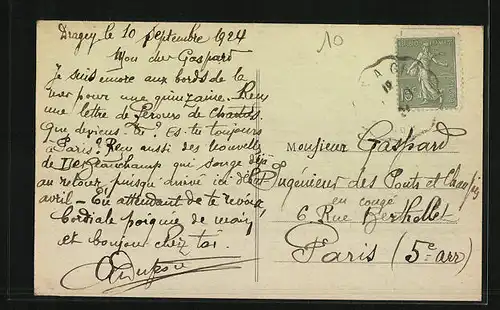 Dragey le 10 septembre 1924
Mon cher Gaspard
Je suis encore aux bords de la
mer pour une quinzaine. Reçu
une lettre de de
Que deviens tu? Es-tu toujours
à Paris? Reçu aussi des nouvelles
de Beauchamp qui songe déjà
au retour, puisqu'arrivé ici début
avril - En attendant de te revoir,
Cordiale poignée de main
et bonjour chez toi.
10
Monsieur Gaspard
Ingénieur des Ponts et Chaussées
en congé
6 Rue Berthollet
Paris (5e arr)
15